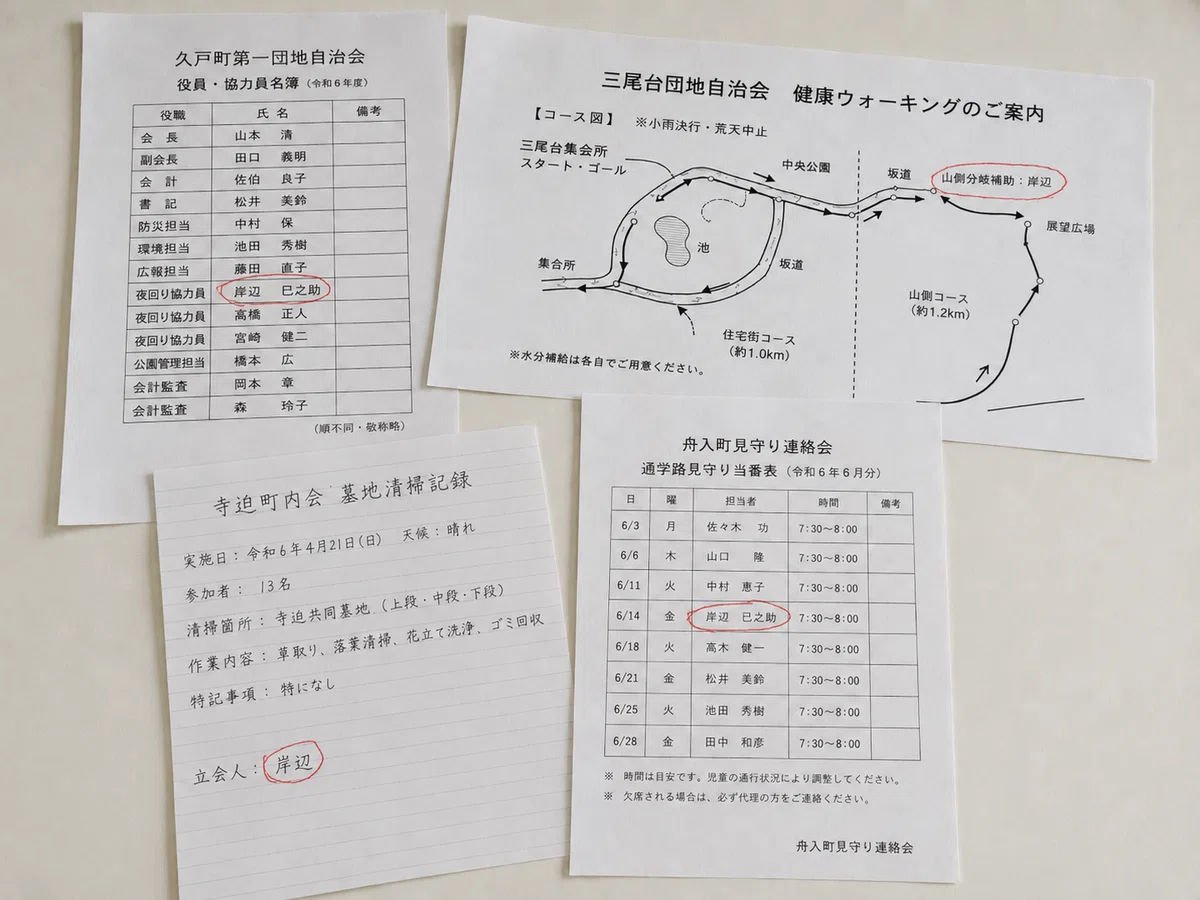 久戸町第一団地自治会
役員・協力員名簿（令和６年度）
役職 氏名 備考
会長 山本 清
副会長 田口 義明
会計 佐伯 良子
書記 松井 美鈴
防災担当 中村 保
環境担当 池田 秀樹
広報担当 藤田 直子
夜回り協力員 岸辺 巳之助
夜回り協力員 高橋 正人
夜回り協力員 宮崎 健二
公園管理担当 橋本 広
会計監査 岡本 章
会計監査 森 玲子
（順不同・敬称略）
三尾台団地自治会 健康ウォーキングのご案内
【コース図】 ※小雨決行・荒天中止
三尾台集会所
スタート・ゴール
中央公園
坂道
山側分岐補助：岸辺
展望広場
池
坂道
集合所
山側コース
（約1.2km）
住宅街コース
（約1.0km）
※水分補給は各自でご用意ください。
寺迫町内会 墓地清掃記録
実施日：令和６年４月21日(日) 天候：晴れ
参加者：13名
清掃箇所：寺迫共同墓地（上段・中段・下段）
作業内容：草取り、落葉清掃、花立て洗浄、ゴミ回収
特記事項：特になし
立会人：岸辺
舟入町見守り連絡会
通学路見守り当番表（令和６年６月分）
日 曜 担当者 時間 備考
6/3 月 佐々木 功 7:30～8:00
6/6 木 山口 隆 7:30～8:00
6/11 火 中村 恵子 7:30～8:00
6/14 金 岸辺 巳之助 7:30～8:00
6/18 火 高木 健一 7:30～8:00
6/21 金 松井 美鈴 7:30～8:00
6/25 火 池田 秀樹 7:30～8:00
6/28 金 田中 和彦 7:30～8:00
※ 時間は目安です。児童の通行状況により調整してください。
※ 欠席される場合は、必ず代理の方をご連絡ください。
舟入町見守り連絡会